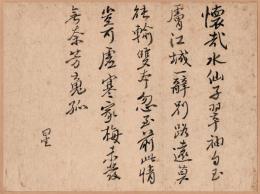 懷哉水仙子翠袖白玉
膚江城一辭別路遠莫
能輸雙本忽至前此情
豈可虛寒家梅未發
無奈芳魂孤